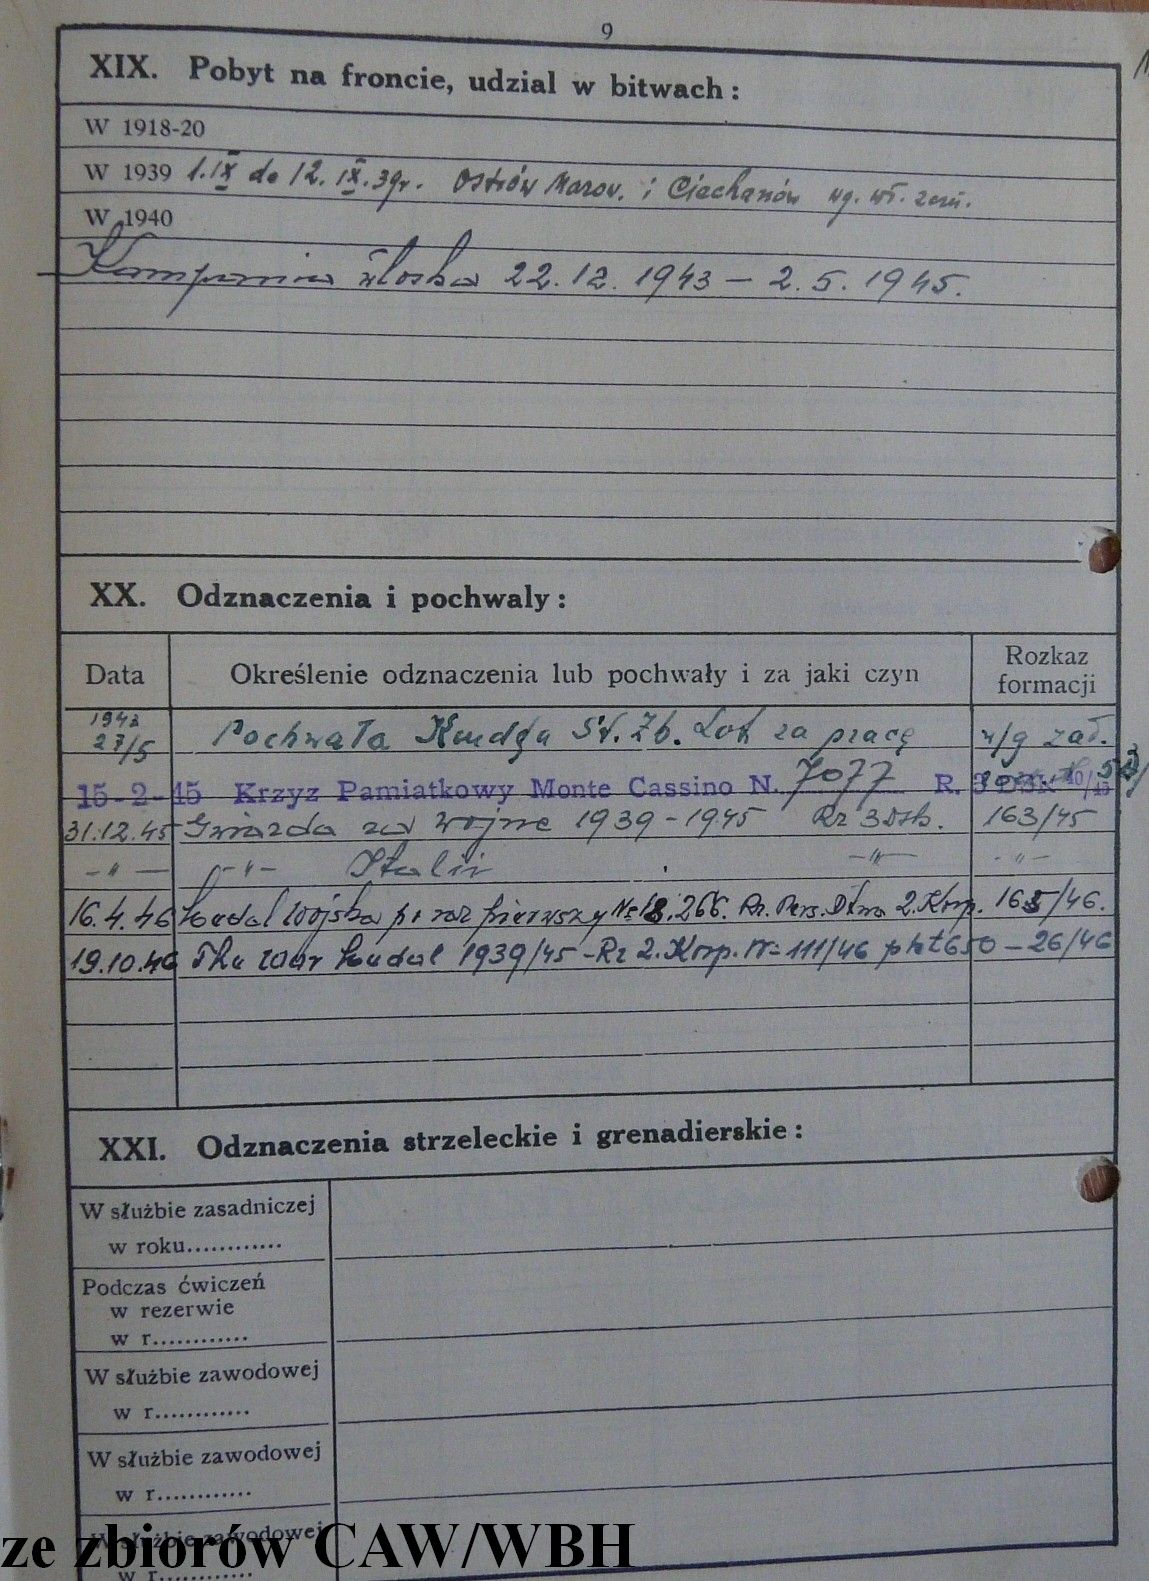 9
XIX. Pobyt na froncie, udzial w bitwach:
W 1918-20
W 1939 1.IX do 12.IX.39r. Ostrów Mazow. i Ciechanów wg. wł. zezn.
W 1940
Kampania włoska 22.12.1943 — 2.5.1945.
XX. Odznaczenia i pochwaly:
Data Określenie odznaczenia lub pochwały i za jaki czyn Rozkaz formacji
27/5 Pochwała St. Zb. Lot za pracę w/g zał.
15-2-45 Krzyz Pamiatkowy Monte Cassino N. 7077 R. 3
31.12.45 Gwiazda za wojnę 1939-1945 Rz 3 Dsk. 163/45
-"- -"- Italii -"- -"-
16.4.46 Medal Wojska po raz pierwszy № 18.266. Rz. Pers. Dtwa 2. Korp. 165/46.
19.10.46 The War Medal 1939/45 - Rz 2. Korp. № 111/46 pkt 650 - 26/46
XXI. Odznaczenia strzeleckie i grenadierskie:
W służbie zasadniczej
w roku............
Podczas ćwiczeń
w rezerwie
w r............
W służbie zawodowej
w r............
W służbie zawodowej
w r............
W służbie zawodowej
w r............
ze zbiorów CAW/WBH